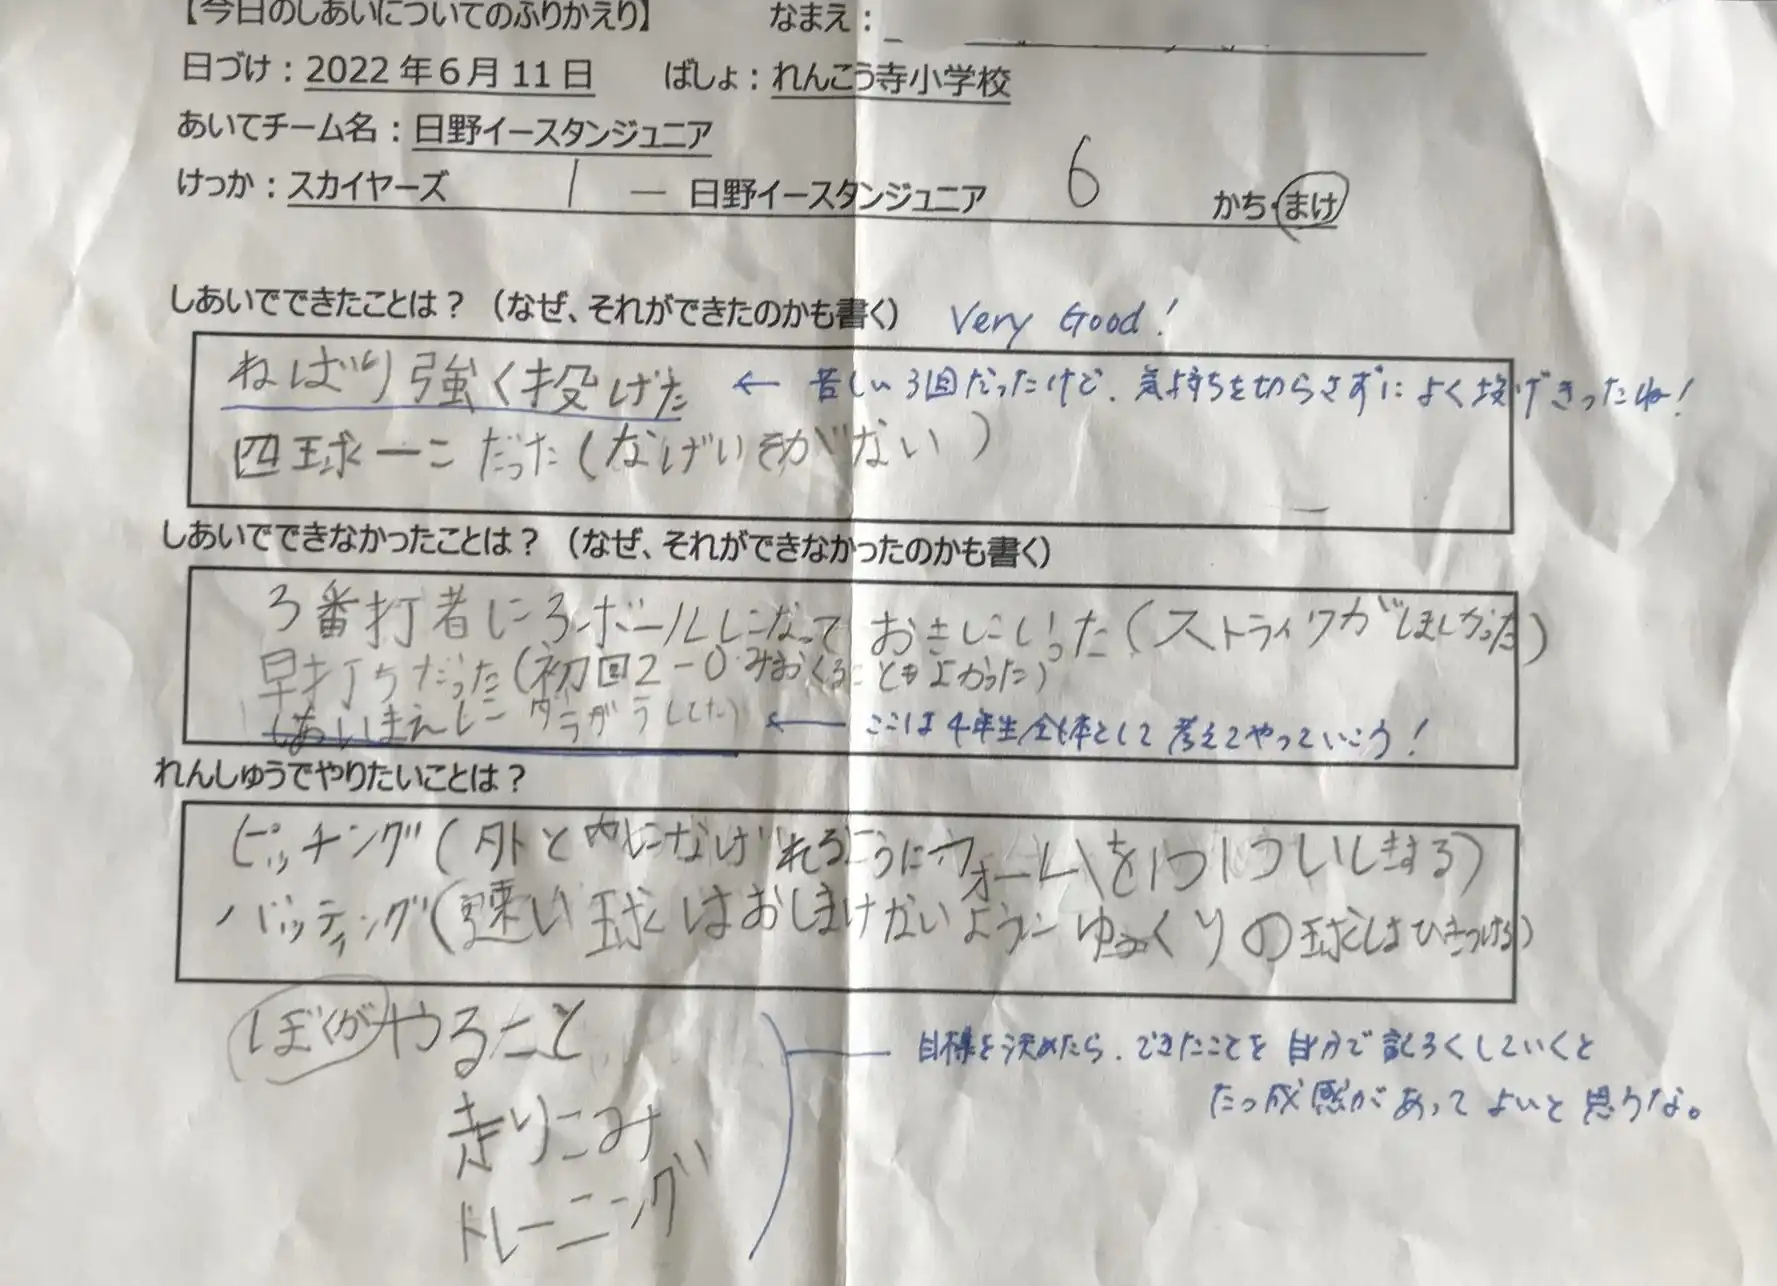 【今日のしあいについてのふりかえり】 なまえ：
日づけ：2022年6月11日 ばしょ：れんこう寺小学校
あいてチーム名：日野イースタンジュニア
けっか：スカイヤーズ 1 ― 日野イースタンジュニア 6 かち・まけ
しあいでできたことは？（なぜ、それができたのかも書く） Very Good!
ねばり強く投げた ← 苦しい3回だったけど、気持ちを切らさずによく投げきったね!
四球一こだった(なげいそがない)
しあいでできなかったことは？（なぜ、それができなかったのかも書く）
3番打者に3ボールになっておきにいった(ストライクがほしかった)
早打ちだった(初回2-0みおくることもよかった)
しあいまえにダラダラしてた ← ここは4年生全体として考えてやっていこう!
れんしゅうでやりたいことは？
ピッチング(外と内になげれるようにフォームを1つ1ついしきする)
バッティング(速い球はおしまけないようにゆっくりの球はひきつける)
ぼくがやること
目標を決めたら、できたことを自分で記ろくしていくと
たっ成感があってよいと思うな。
走りこみ
トレーニング